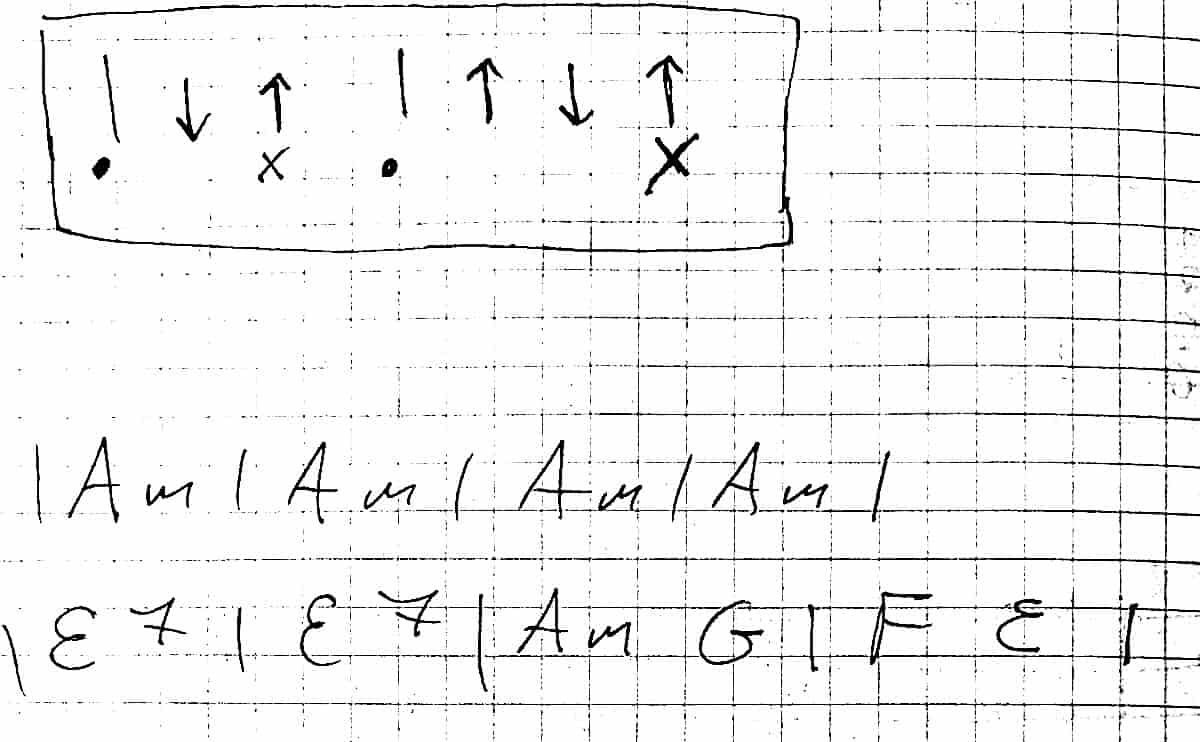 | ↓ ↑ | ↑ ↓ ↑
• x • x
| Am | Am | Am | Am |
| E7 | E7 | Am G | F E |